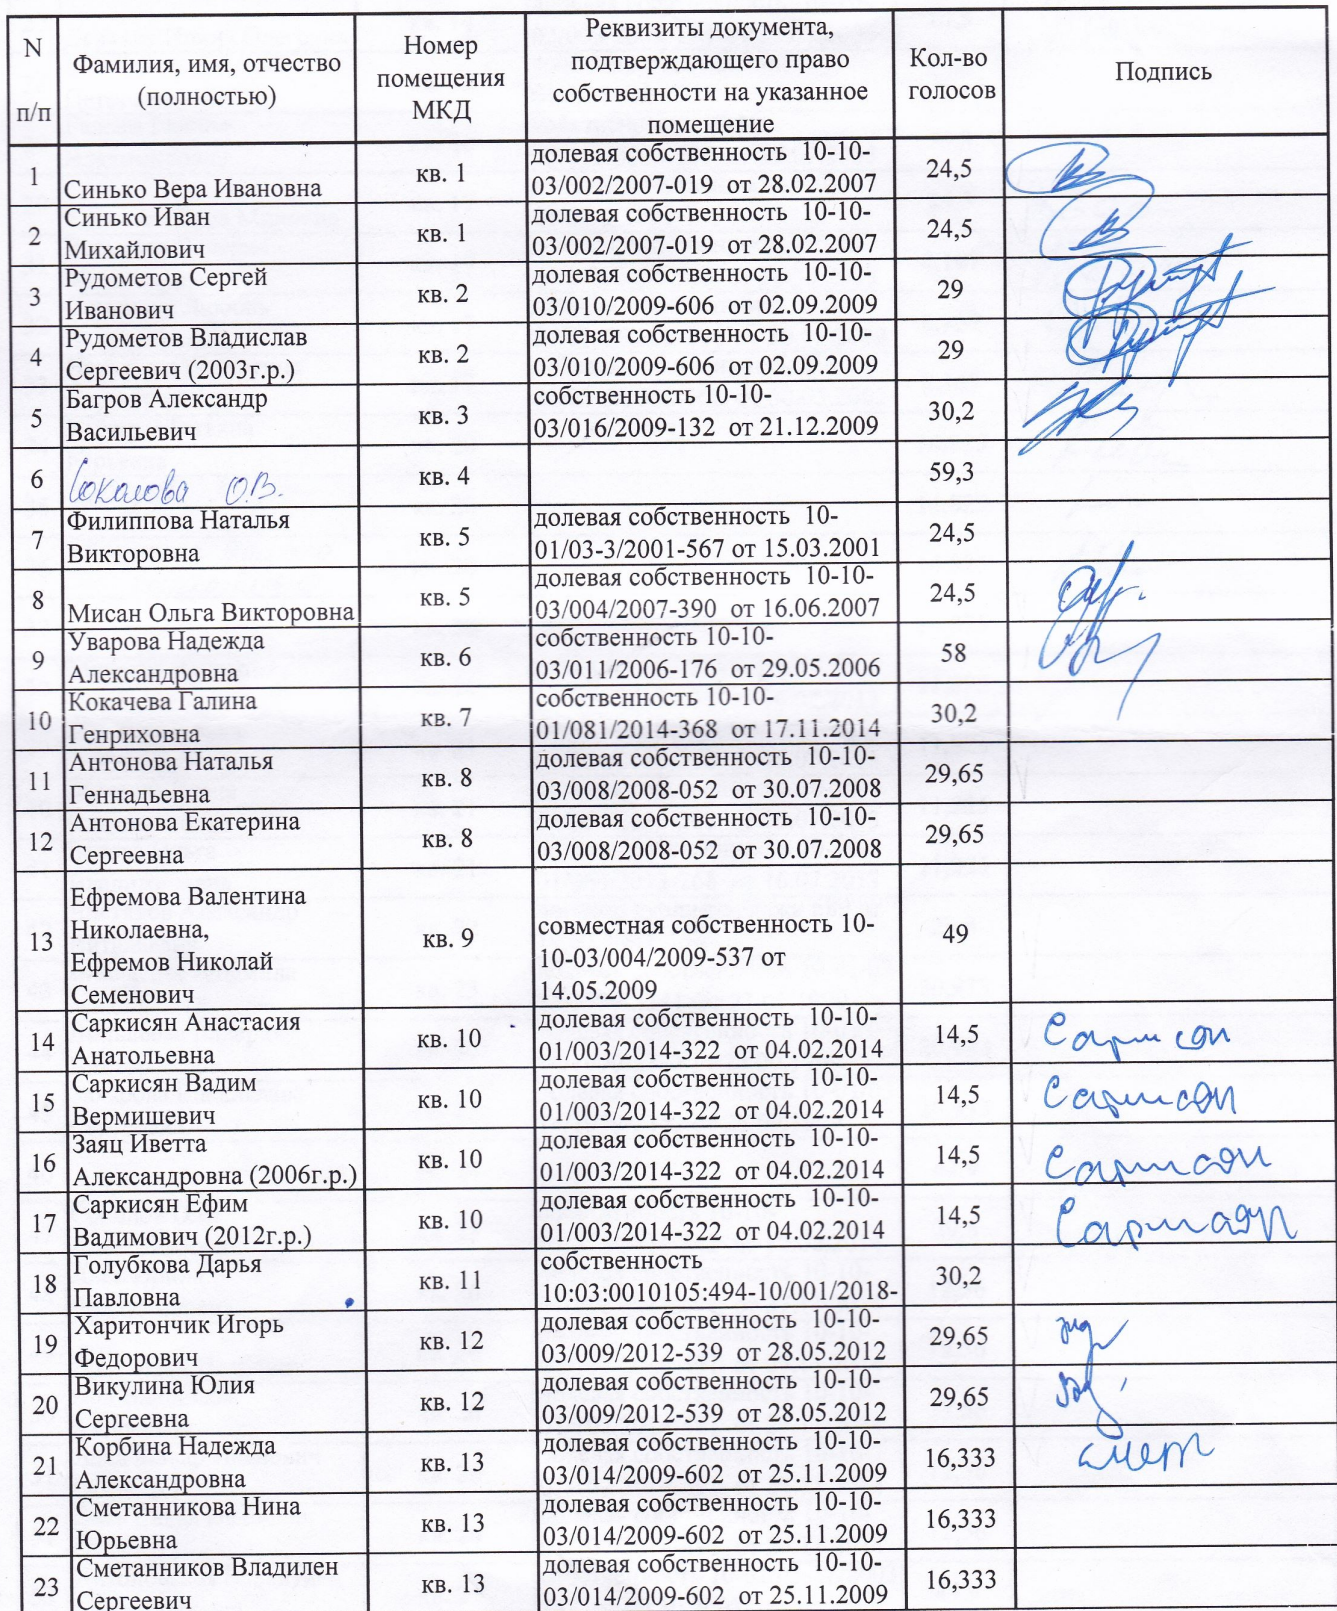 N п/п
Фамилия, имя, отчество (полностью)
Номер помещения МКД
Реквизиты документа, подтверждающего право собственности на указанное помещение
Кол-во голосов
Подпись
1
Синько Вера Ивановна
кв. 1
долевая собственность 10-10-
03/002/2007-019 от 28.02.2007
24,5
2
Синько Иван
Михайлович
кв. 1
долевая собственность 10-10-
03/002/2007-019 от 28.02.2007
24,5
3
Рудометов Сергей
Иванович
кв. 2
долевая собственность 10-10-
03/010/2009-606 от 02.09.2009
29
4
Рудометов Владислав
Сергеевич (2003г.р.)
кв. 2
долевая собственность 10-10-
03/010/2009-606 от 02.09.2009
29
5
Багров Александр
Васильевич
кв. 3
собственность 10-10-
03/016/2009-132 от 21.12.2009
30,2
6
Соколова О.В.
кв. 4
59,3
7
Филиппова Наталья
Викторовна
кв. 5
долевая собственность 10-
01/03-3/2001-567 от 15.03.2001
24,5
8
Мисан Ольга Викторовна
кв. 5
долевая собственность 10-10-
03/004/2007-390 от 16.06.2007
24,5
9
Уварова Надежда
Александровна
кв. 6
собственность 10-10-
03/011/2006-176 от 29.05.2006
58
10
Кокачева Галина
Генриховна
кв. 7
собственность 10-10-
01/081/2014-368 от 17.11.2014
30,2
11
Антонова Наталья
Геннадьевна
кв. 8
долевая собственность 10-10-
03/008/2008-052 от 30.07.2008
29,65
12
Антонова Екатерина
Сергеевна
кв. 8
долевая собственность 10-10-
03/008/2008-052 от 30.07.2008
29,65
13
Ефремова Валентина
Николаевна,
Ефремов Николай
Семенович
кв. 9
совместная собственность 10-
10-03/004/2009-537 от
14.05.2009
49
14
Саркисян Анастасия
Анатольевна
кв. 10
долевая собственность 10-10-
01/003/2014-322 от 04.02.2014
14,5
15
Саркисян Вадим
Вермишевич
кв. 10
долевая собственность 10-10-
01/003/2014-322 от 04.02.2014
14,5
16
Заяц Иветта
Александровна (2006г.р.)
кв. 10
долевая собственность 10-10-
01/003/2014-322 от 04.02.2014
14,5
17
Саркисян Ефим
Вадимович (2012г.р.)
кв. 10
долевая собственность 10-10-
01/003/2014-322 от 04.02.2014
14,5
18
Голубкова Дарья
Павловна
кв. 11
собственность
10:03:0010105:494-10/001/2018-
30,2
19
Харитончик Игорь
Федорович
кв. 12
долевая собственность 10-10-
03/009/2012-539 от 28.05.2012
29,65
20
Викулина Юлия
Сергеевна
кв. 12
долевая собственность 10-10-
03/009/2012-539 от 28.05.2012
29,65
21
Корбина Надежда
Александровна
кв. 13
долевая собственность 10-10-
03/014/2009-602 от 25.11.2009
16,333
22
Сметанникова Нина
Юрьевна
кв. 13
долевая собственность 10-10-
03/014/2009-602 от 25.11.2009
16,333
23
Сметанников Владилен
Сергеевич
кв. 13
долевая собственность 10-10-
03/014/2009-602 от 25.11.2009
16,333